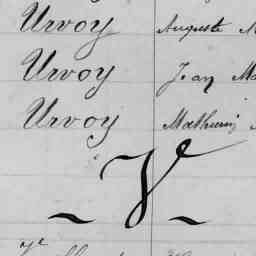 Urvoy Auguste M
Urvoy Jean Ma
Urvoy Mathurin
~ V ~